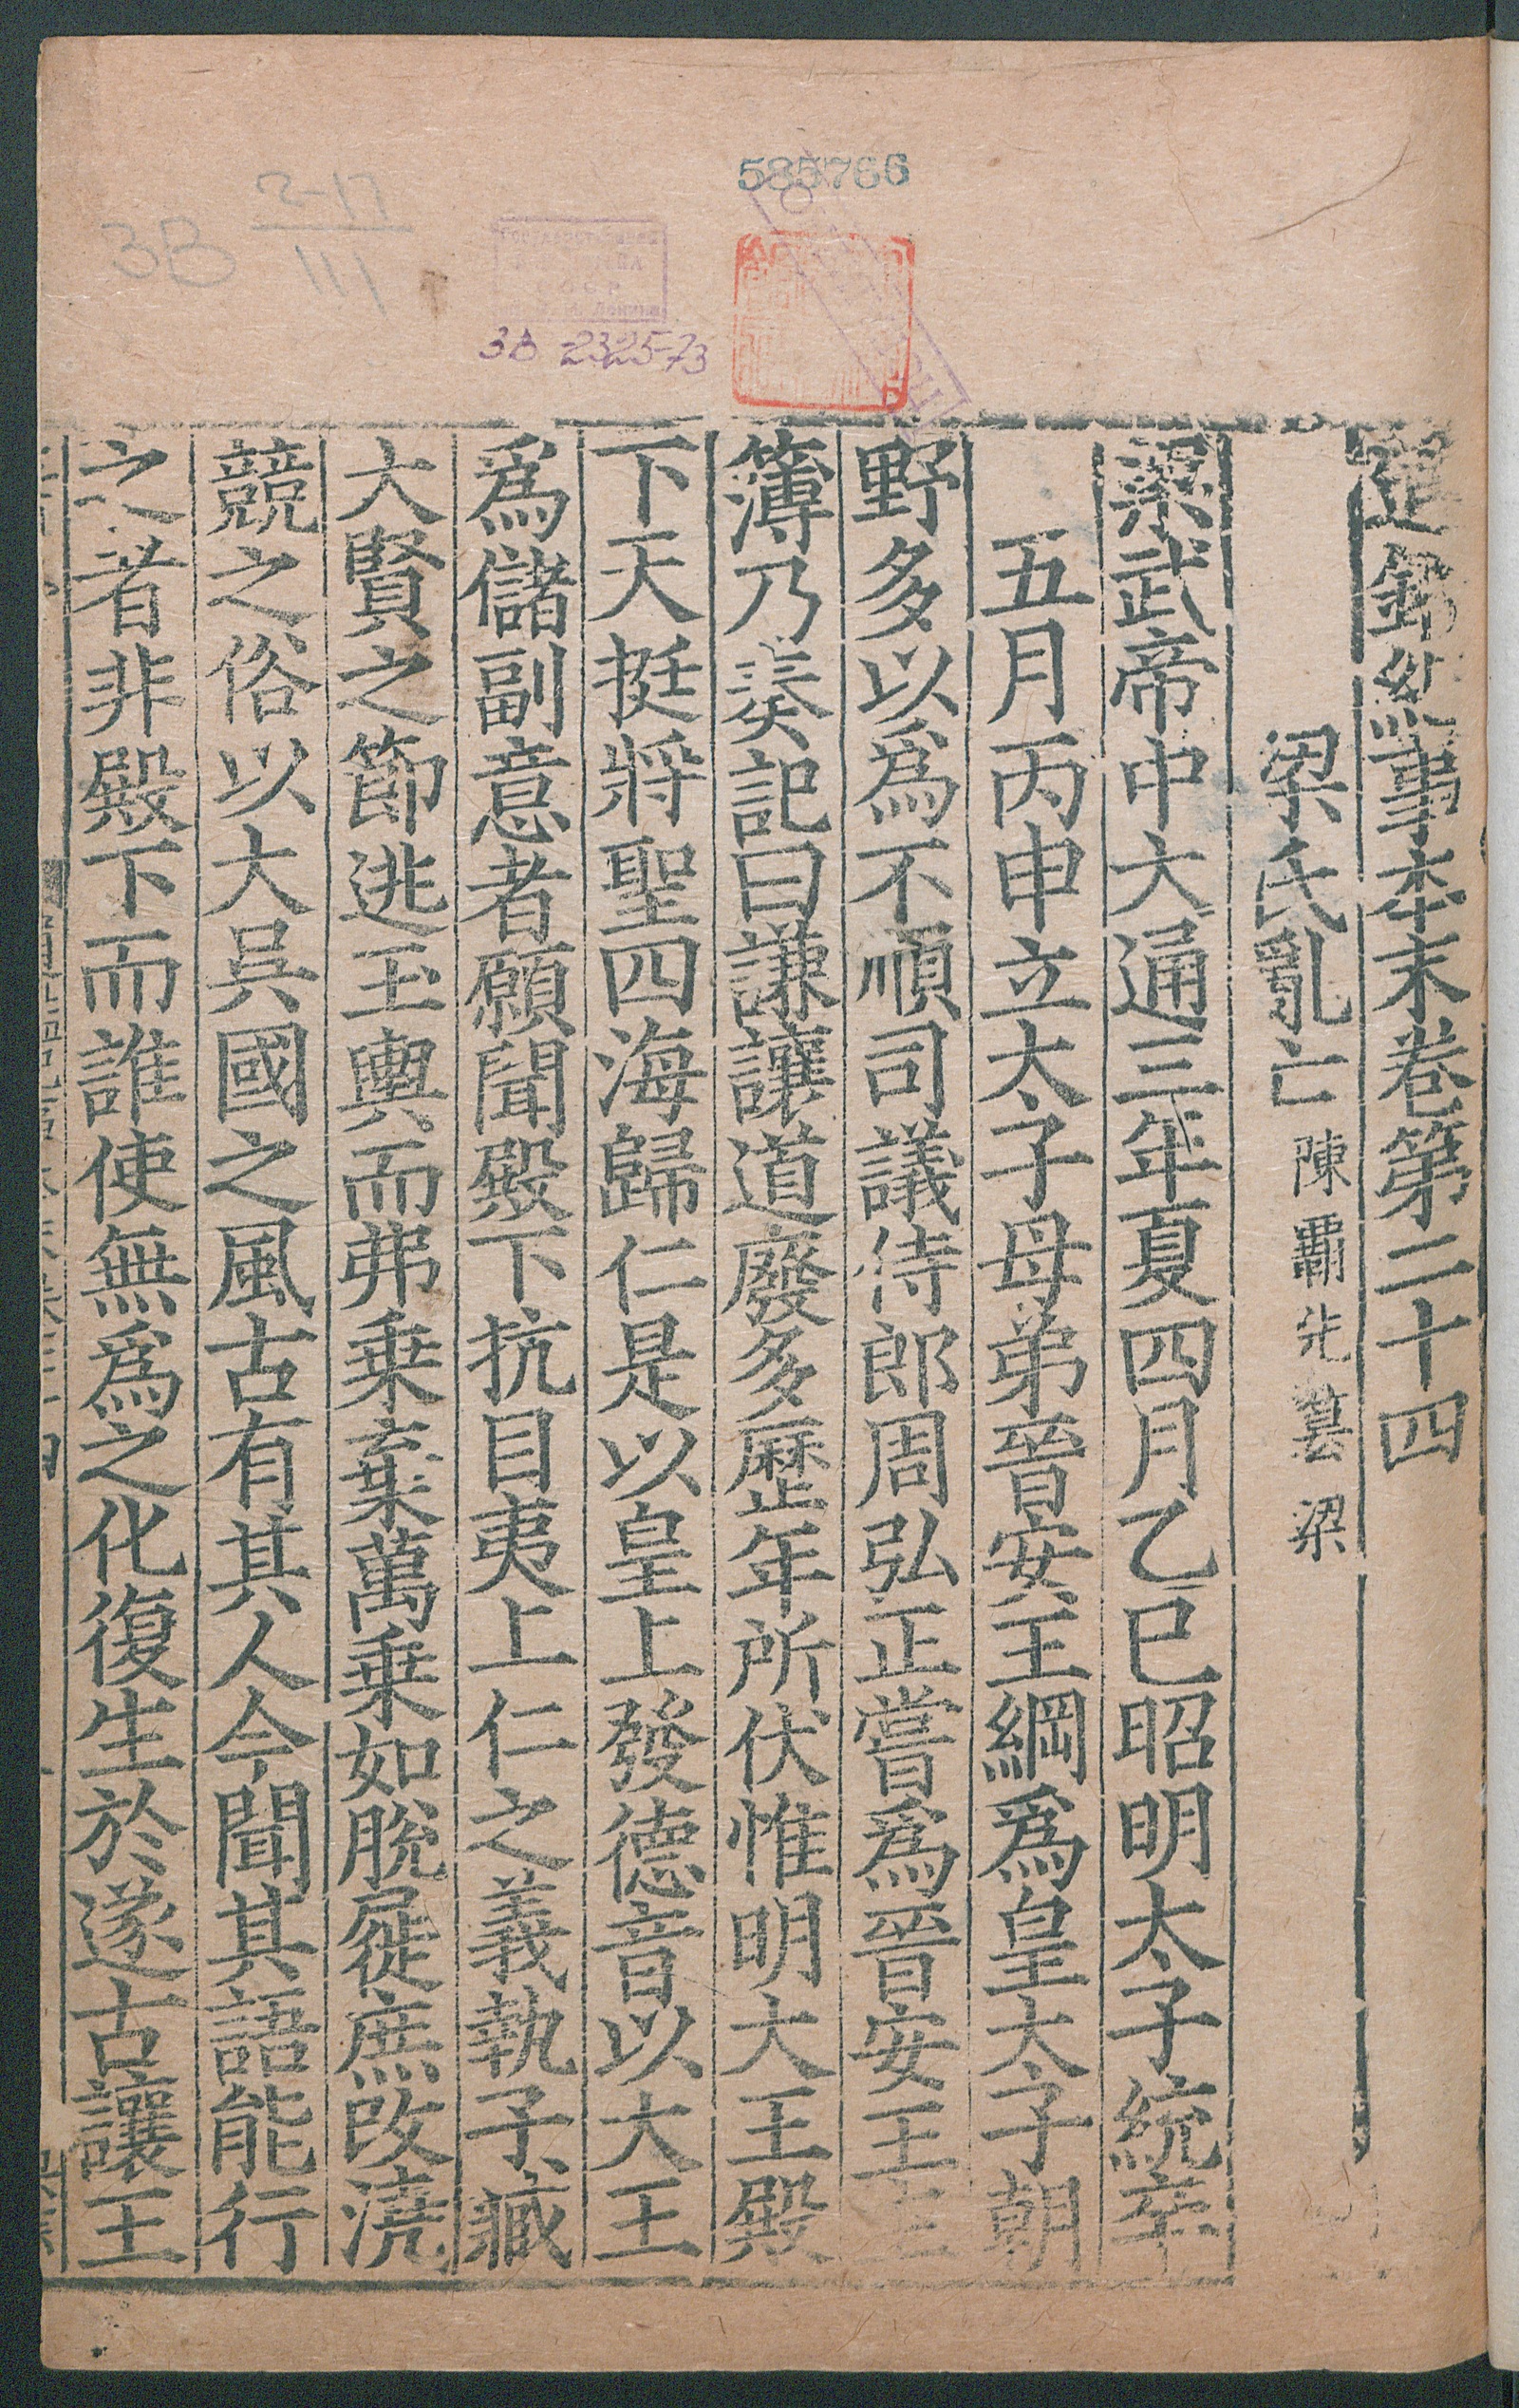 585766
2-17
3B
111
3B 2325-73
通鑑紀事本末卷第二十四
梁氏亂亡 陳霸先篡梁
梁武帝中大通三年夏四月乙巳昭明太子統卒
五月丙申立太子母弟晉安王綱爲皇太子朝
野多以爲不順司議侍郎周弘正嘗爲晉安王主
簿乃奏記曰謙讓道廢多歷年所伏惟明大王殿
下天挺將聖四海歸仁是以皇上發德音以大王
爲儲副意者願聞殿下抗目夷上仁之義執子臧
大賢之節逃玉輿而弗乗棄萬乗如脫屣庶改澆
競之俗以大吳國之風古有其人今聞其語能行
之者非殿下而誰使無爲之化復生於遂古讓王